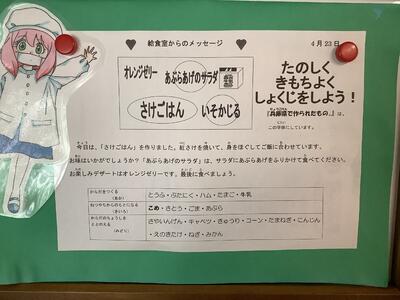 給食室からのメッセージ
4月23日
オレンジゼリー
あぶらあげのサラダ
さけごはん
いそかじる
たのしく
きもちよく
しょくじをしよう!
『兵庫県で作られたもの』は、
この字体にしています。
今日は、「さけごはん」を作りました。紅さけを焼いて、身をほぐしてご飯に合わせています。
お味はいかがでしょうか?「あぶらあげのサラダ」は、サラダにあぶらあげをふりかけて食べてください。
お楽しみデザートはオレンジゼリーです。最後に食べましょう。
からだをつくる
(あか)
とうふ・ぶたにく・ハム・たまご・牛乳
ねつやちからのもとになる
(きいろ)
こめ・さとう・ごま・あぶら
からだのちょうしを
ととのえる
(みどり)
さやいんげん・キャベツ・きゅうり・コーン・たまねぎ・こんにゃく
・えのきたけ・ねぎ・みかん